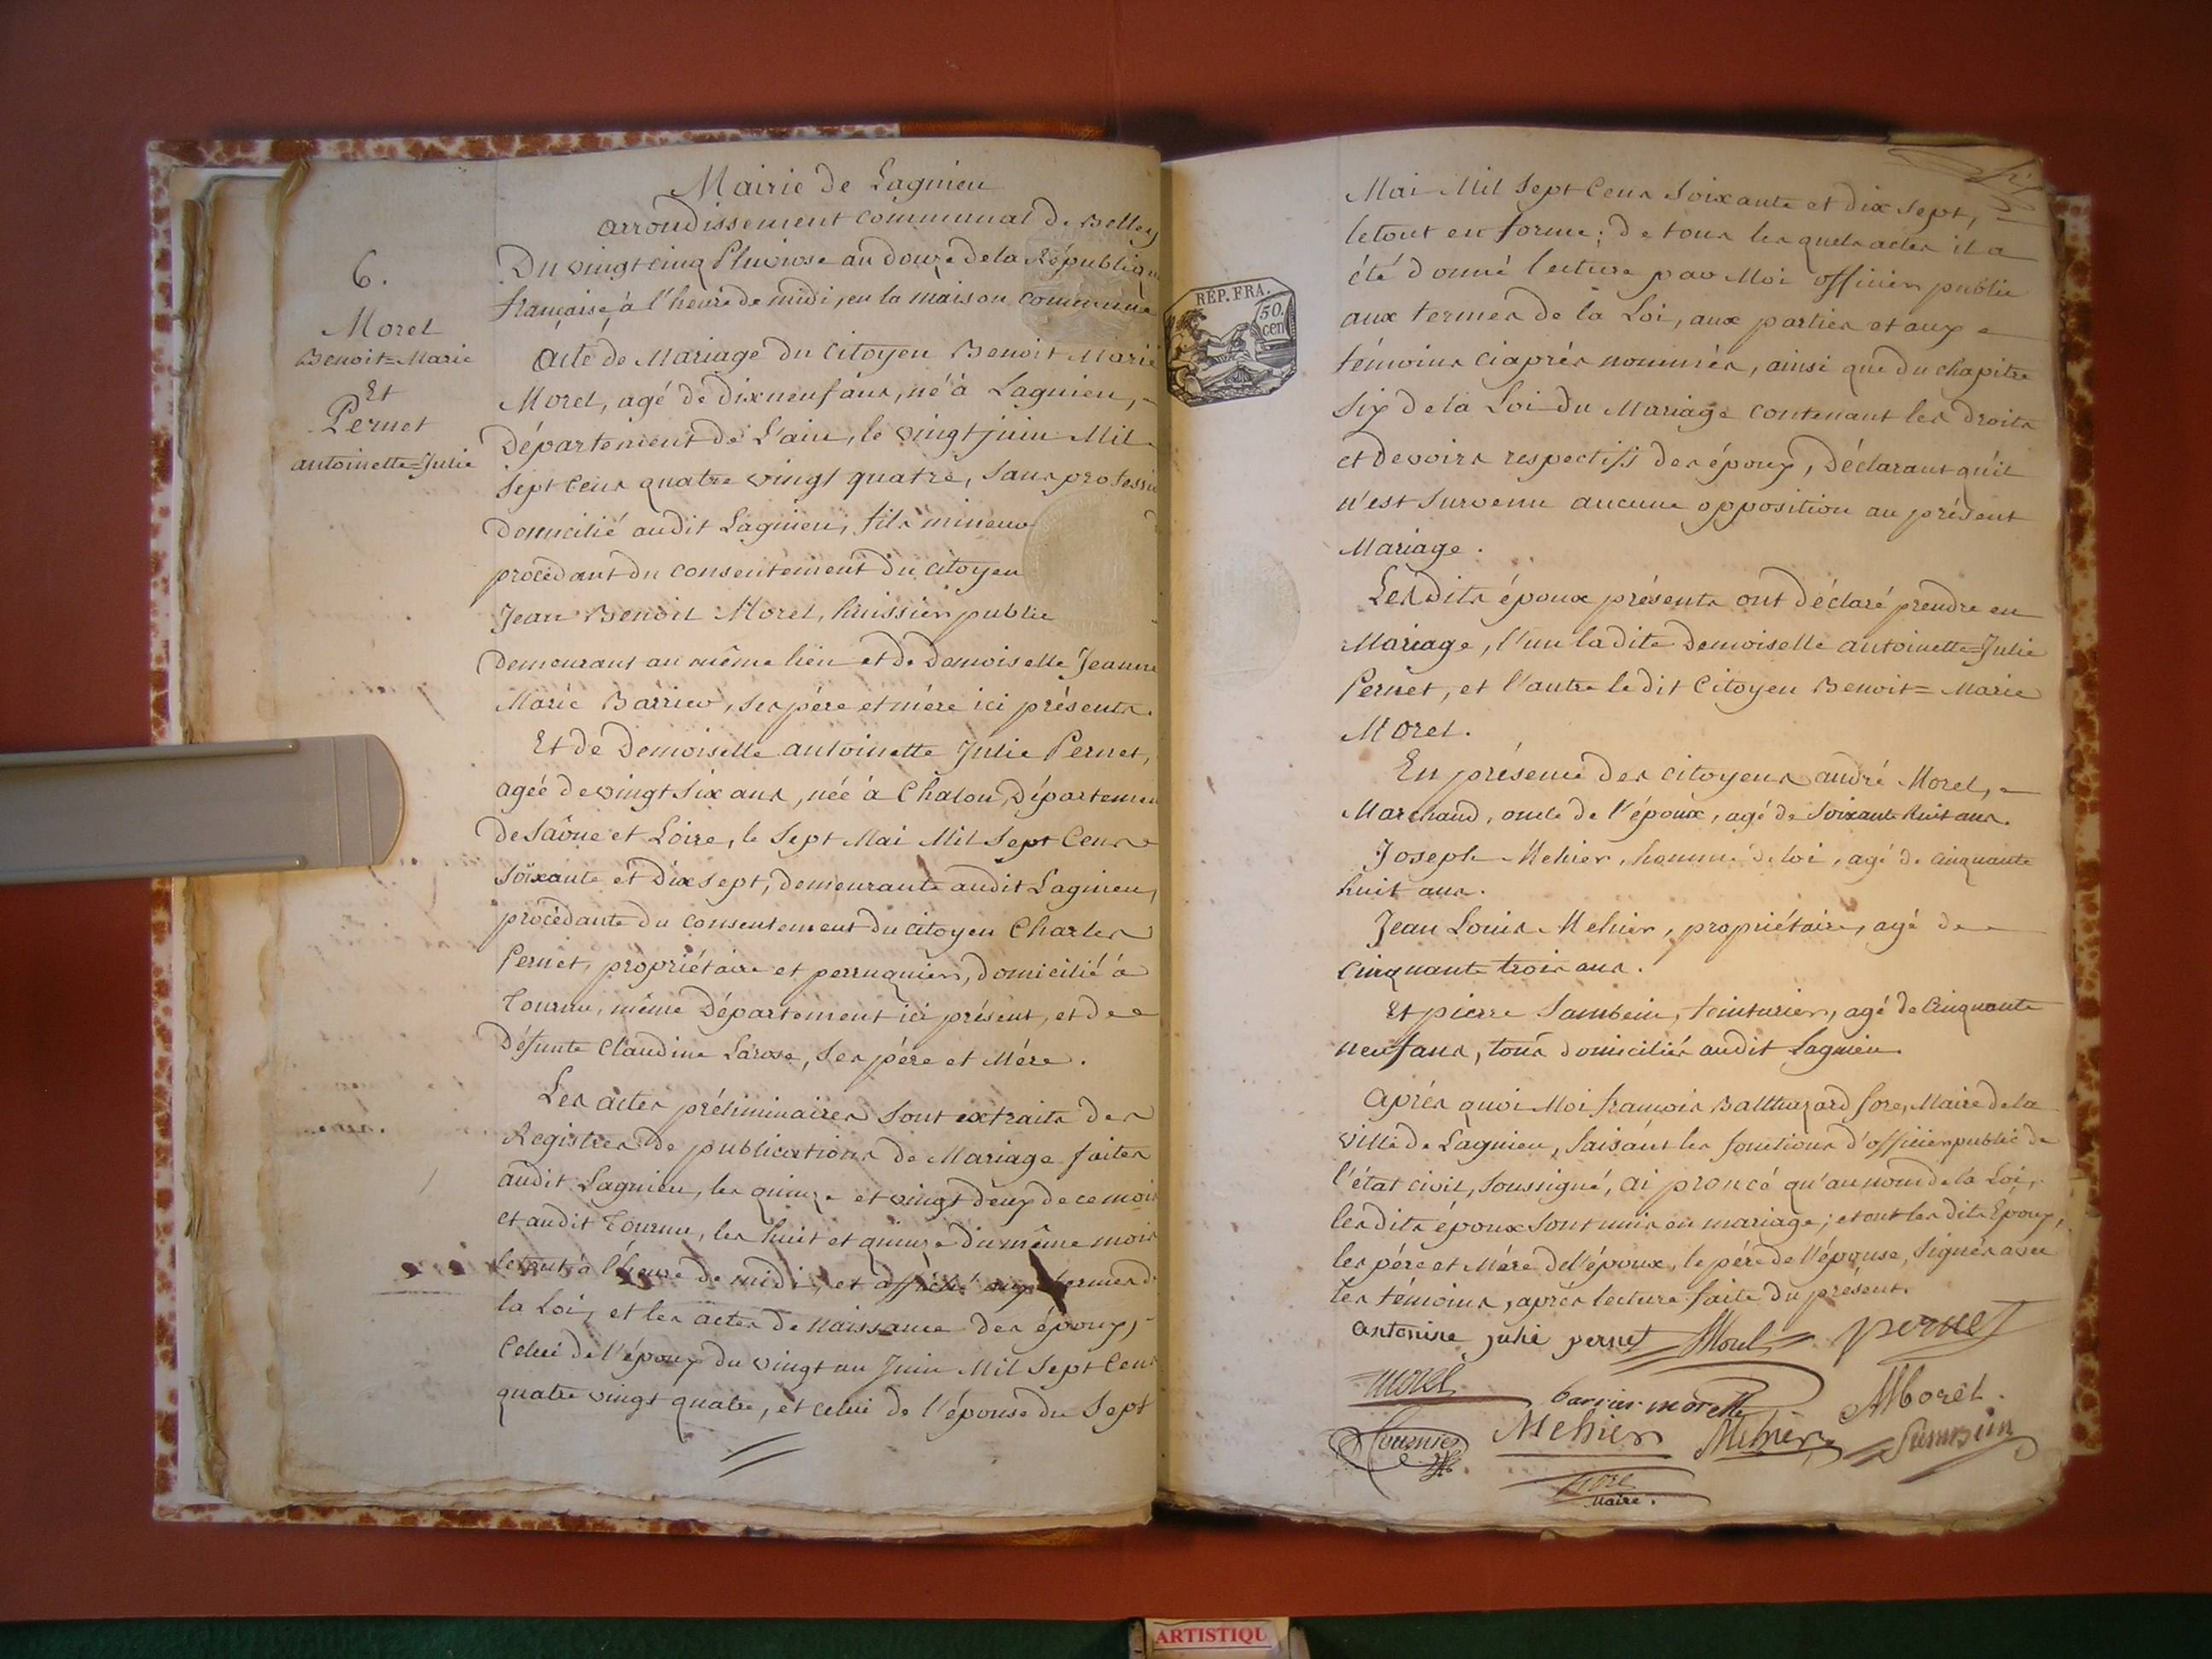 Mairie de Lagnieu
arrondissement communal de Belley
6.
Morel
Benoit=Marie
Et
Pernet
antoinette=Julie
Du vingt cinq Pluviose an douze de la République
française, à l'heure de midi, en la maison commune
Acte de Mariage du Citoyen Benoit Marie
Morel, agé de dixneuf ans, né à Lagnieu,
Département de l'ain, le vingt juin Mil
Sept Cens quatre vingt quatre, sans professi
domicilié audit Lagnieu, fils mineur
procédant du consentement du citoyen
Jean Benoit Morel, huissier public
demeurant au même lieu et de demoiselle Jeanne
Marie Barrier, ses père et mère ici présents.
Et de Demoiselle antoinette Julie Pernet,
agée de vingt six ans, née à Chalon, Départemen
de Saône et Loire, le Sept Mai Mil Sept Cens
Soixante et Dix sept, demeurante audit Lagnieu,
procédante du consentement du citoyen Charles
Pernet, propriétaire et perruquier, domicilié à
Tournu, même Département ici présent, et de
Défunte Claudine Larose, ses père et Mère.
Les actes préliminaires sont extraits des
Registres de publications de Mariage faites
audit Lagnieu, les quinze et vingt deux de ce mois
et audit Tournu, les huit et quinze du même mois
le tout à l'heure de midi, et affiché aux termes d
la Loi, et les actes de Naissance des époux,
Celui de l'époux du vingt un Juin Mil Sept Cens
quatre vingt quatre, et celui de l'épouse du Sept
REP. FRA.
50.
cen
Mai Mil Sept Cens Soixante et dix Sept,
le tout en forme; de tous les quels actes il a
été donné lecture par Moi officier public
aux termes de la Loi, aux parties et aux
témoins ciaprès nommés, ainsi que du chapitre
Six de la Loi du Mariage contenant les droits
et devoirs respectifs des époux, Déclarant qu'il
n'est Survenu aucune opposition au présent
Mariage.
Lesdits époux présents ont déclaré prendre en
Mariage, l'un ladite demoiselle antoinette=Julie
Pernet, et l'autre ledit Citoyen Benoit=Marie
Morel.
En présence des citoyens andré Morel,
Marchand, oncle de l'époux, agé de Soixante huit ans.
Joseph Mehier, homme de loi, agé de Cinquante
huit ans.
Jean Louis Mehier, propriétaire, agé de
Cinquante trois ans.
Et pierre Sambein, teinturier, agé de Cinquante
neuf ans, tous domiciliés audit Lagnieu.
Après quoi Moi françois Balthazard sore, Maire de la
ville de Lagnieu, faisant les fonctions d'officier public de
l'état civil, soussigné, ai proncé qu'au nom de la Loi,
lesdits époux sont unis en mariage; et ont lesdits Epoux,
les père et Mère de l'époux, le père de l'épouse, Signés avec
les témoins, après lecture faite du présent.
antonine julie pernet Morel pernet
morel barrier morelle AMorel.
Mehier Mehier Sambein
sore
Maire.
ARTISTIQU